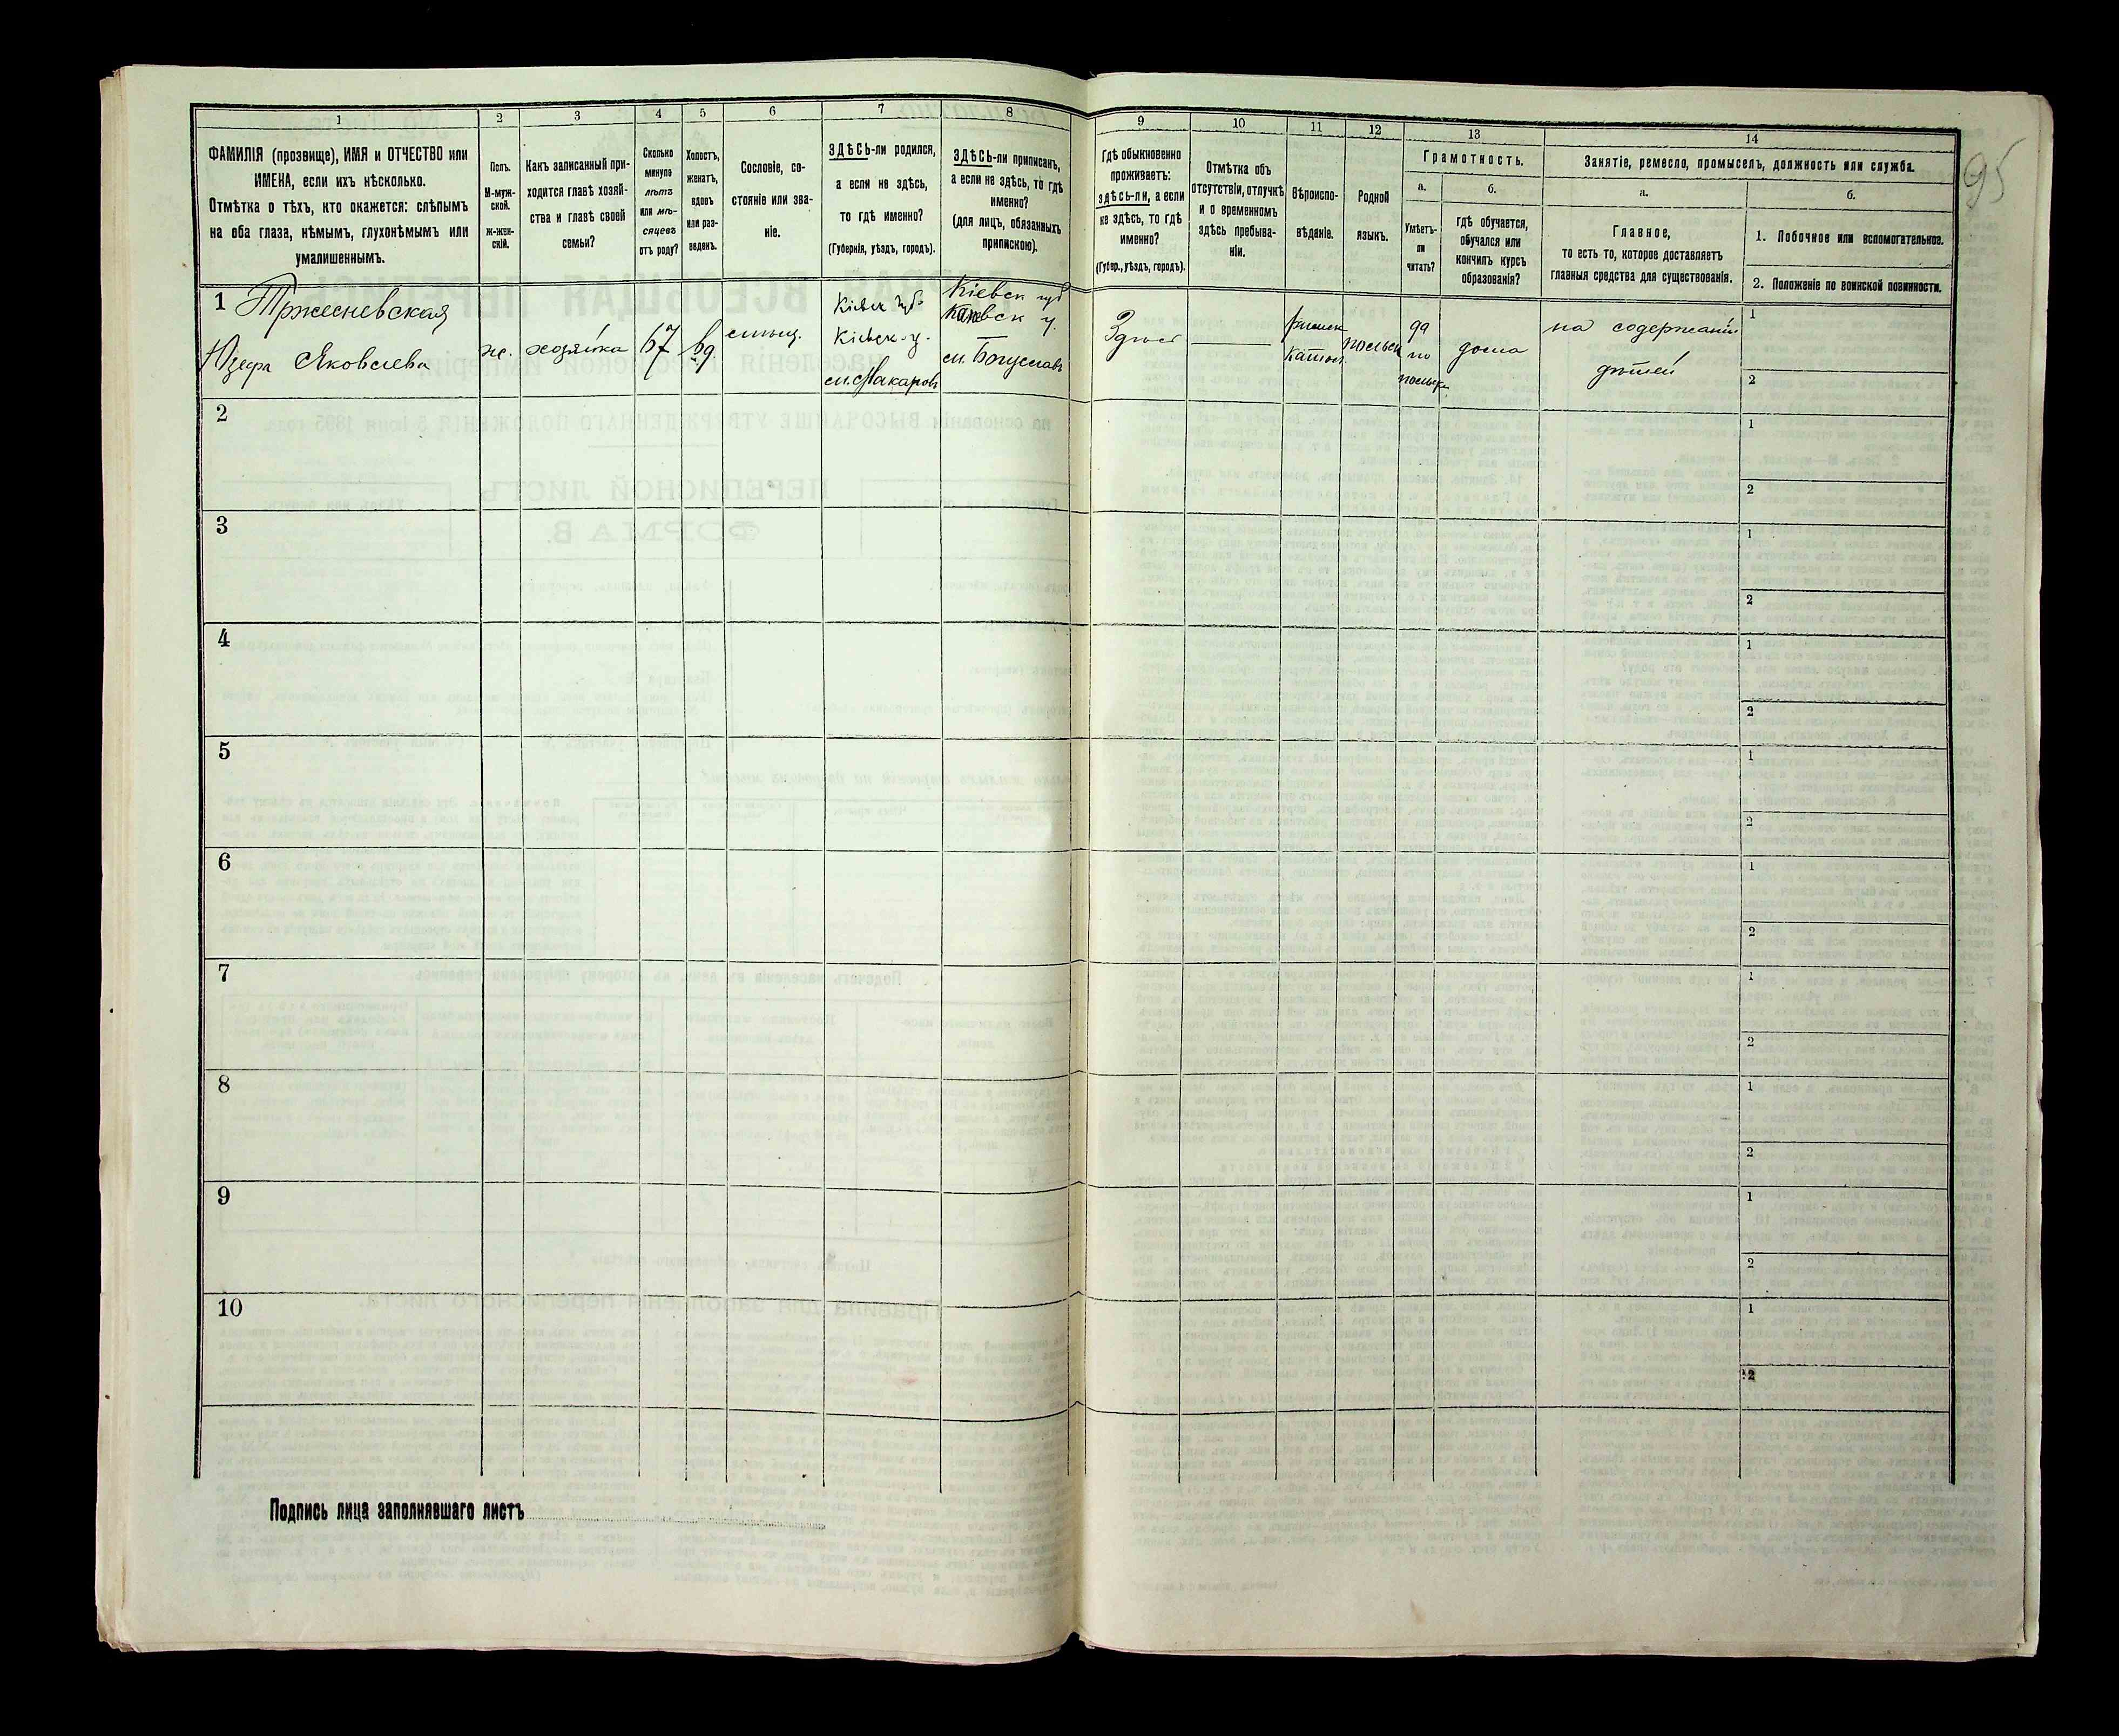 95
1
ФАМИЛІЯ (прозвище), ИМЯ и ОТЧЕСТВО или
ИМЕНА, если ихъ нѣсколько.
Отмѣтка о тѣхъ, кто окажется: слѣпымъ
на оба глаза, нѣмымъ, глухонѣмымъ или
умалишеннымъ.
2
Полъ.
М-муж-
ской.
ж-жен-
скій.
3
Какъ записанный при-
ходится главѣ хозяй-
ства и главѣ своей
семьи?
4
Сколько
минуло
лѣтъ
или мѣ-
сяцевъ
отъ роду?
5
Холостъ,
женатъ,
вдовъ
или раз-
веденъ.
6
Сословіе, со-
стояніе или зва-
ніе.
7
ЗДѢСЬ-ли родился,
а если не здѣсь,
то гдѣ именно?
(Губернія, уѣздъ, городъ).
8
ЗДѢСЬ-ли приписанъ,
а если не здѣсь, то гдѣ
именно?
(для лицъ, обязанныхъ
припискою).
9
Гдѣ обыкновенно
проживаетъ:
здѣсь-ли, а если
не здѣсь, то гдѣ
именно?
(Губер., уѣздъ, городъ).
10
Отмѣтка объ
отсутствіи, отлучкѣ
и о временномъ
здѣсь пребыва-
ніи.
11
Вѣроиспо-
вѣданіе.
12
Родной
языкъ.
13
Грамотность.
а.
Умѣетъ-
ли
читать?
б.
гдѣ обучается,
обучался или
кончилъ курсъ
образованія?
14
Занятіе, ремесло, промыселъ, должность или служба.
а.
Главное,
то есть то, которое доставляетъ
главныя средства для существованія.
б.
1. Побочное или вспомогательное.
2. Положеніе по воинской повинности.
1 Тржесневская
Юзефа Яковлева
ж.
хозяйка
67
вд.
Кіевск губ
Кіевск. у.
м. Макаровъ
Кіевск губ
Каневск у.
м. Богуславъ
Здѣсь
римск
катол.
польск
да
по
польск.
дома
на содержаніи
дѣтей
1
2
2
1
2
3
1
2
4
1
2
5
1
2
6
1
2
7
1
2
8
1
2
9
1
2
10
1
2
Подпись лица заполнявшаго листъ